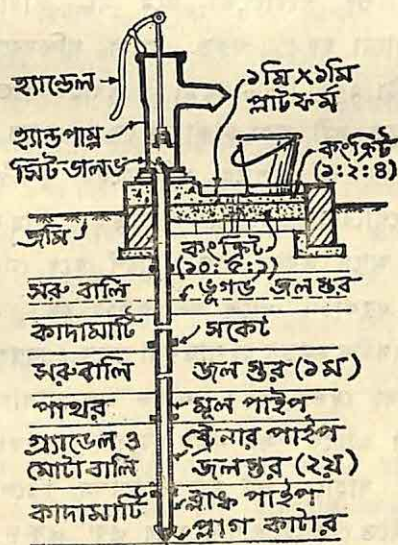 হ্যান্ডেল
১মি X ১মি
প্লাটফর্ম
হ্যান্ডপাম্প
কংক্রিট
(১:২:৪)
সিটভালভ
জমি
কংক্রিট
(১০:৫:১)
সরু বালি
ভূগর্ভ জলস্তর
কাদামাটি
সকেট
সরুবালি
জল স্তর (১ম)
পাথর
মূল পাইপ
গ্র্যাভেল ও
মোটা বালি
ষ্ট্রেনার পাইপ
জলস্তর (২য়)
কাদামাটি
ব্লাঙ্ক পাইপ
প্লাগ কাটার